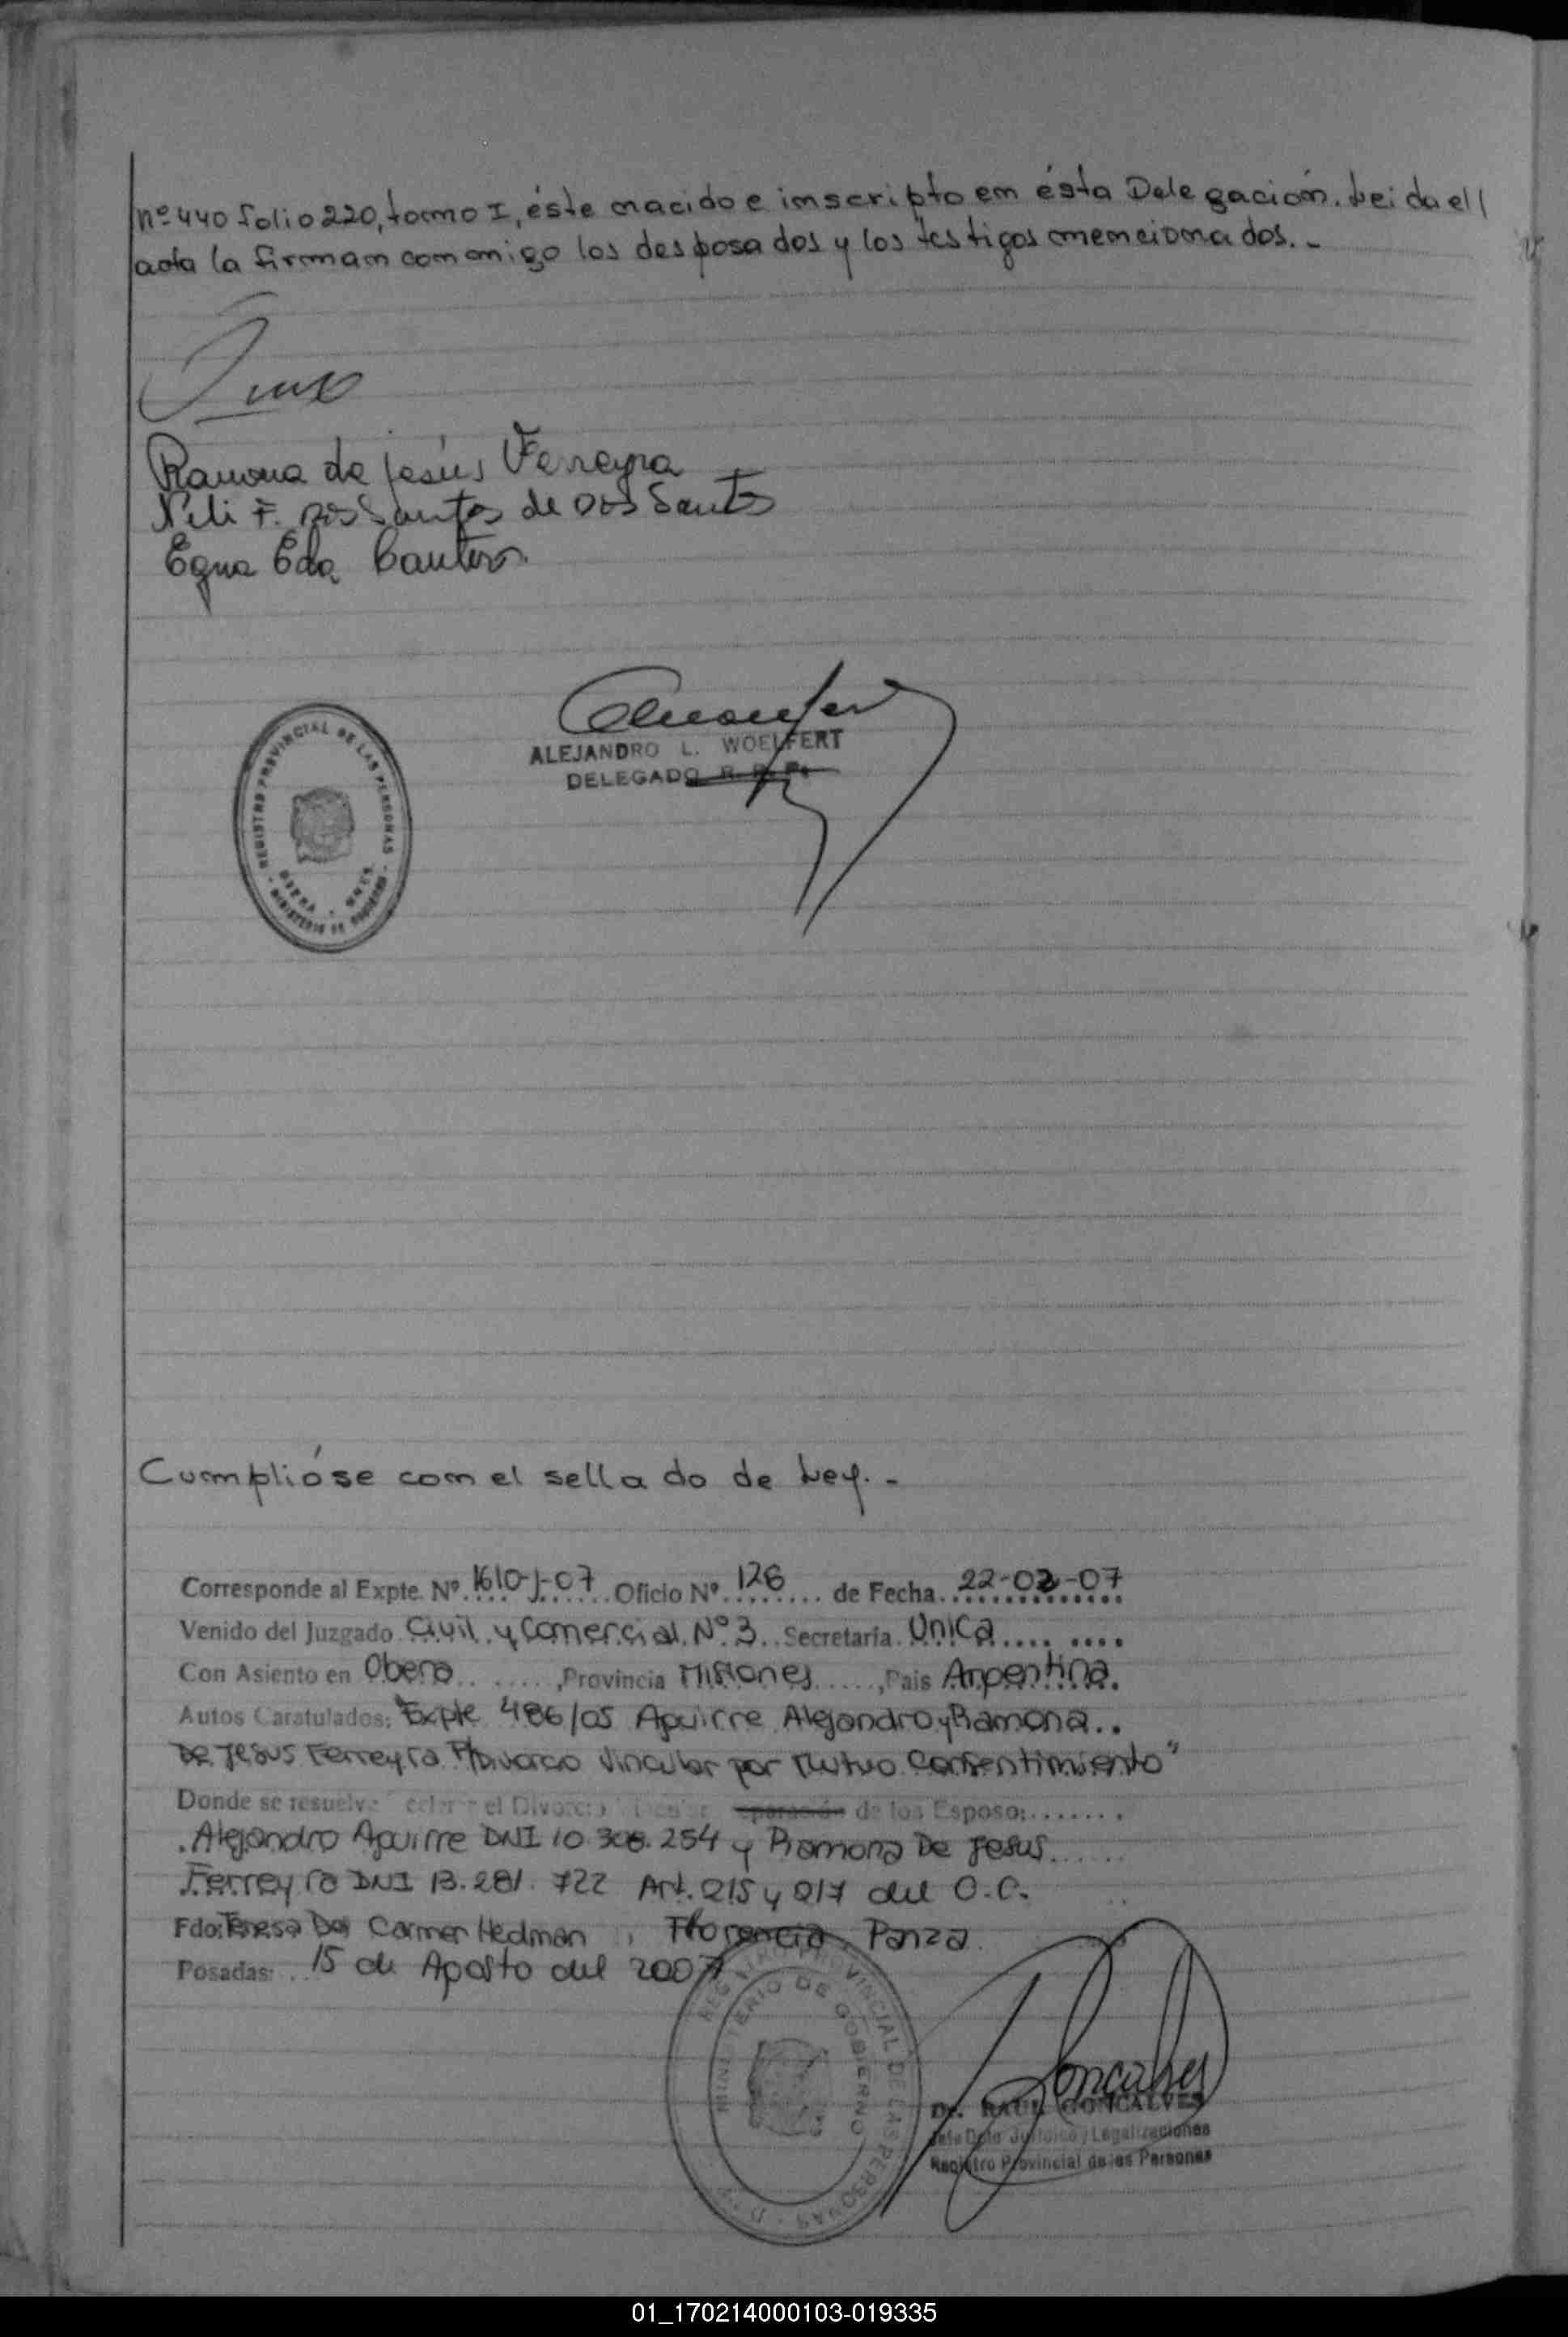 nº 440 folio 220, tomo I, éste nacido e inscripto en ésta Delegación. Leida el
acta la firman conmigo los desposados y los testigos mencionados. -
Ramona de Jesús Ferreyra
Neli F. Dos Santos de Dos Santos
Egna Eda
ALEJANDRO L. WOELFERT
DELEGADO R. P. P.
REGISTRO PROVINCIAL DE LAS PERSONAS
MINISTERIO DE GOBIERNO
Cumplióse con el sellado de Ley. -
Corresponde al Expte. Nº 1610-J-07 Oficio Nº 126 de Fecha 22-02-07
Venido del Juzgado Civil y Comercial Nº 3 Secretaría Unica
Con Asiento en Obera, Provincia Misiones, Pais Argentina.
Autos Caratulados: Expte 486/05 Aguirre Alejandro y Ramona
De Jesus Ferreyra S/Divorcio Vincular por Mutuo Consentimiento"
Donde se resuelve el Divorcio de los Esposo:
Alejandro Aguirre DNI 10.306.254 y Ramona De Jesus
Ferreyra DNI 13.281.722 Art. 215 y 217 del C.C.
Fdo: Teresa Del Carmen Hedman, Florencia Panza
Posadas: 15 de Agosto del 2007
REGISTRO PROVINCIAL DE LAS PERSONAS
MINISTERIO DE GOBIERNO
Dr. RAUL GONCALVES
Jefe Dpto. Jurídico y Legalizaciones
Registro Provincial de las Personas
01_170214000103-019335